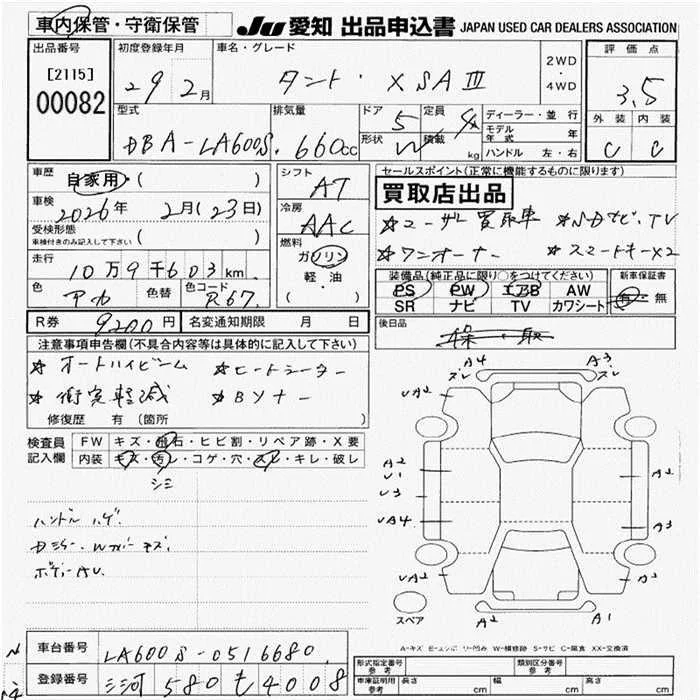 車内保管・守衛保管
JU 愛知 出品申込書 JAPAN USED CAR DEALERS ASSOCIATION
出品番号
[2115]
00082
初度登録年月
29年 2月
車名・グレード
タント・XSAⅢ
2WD
・
4WD
評価点
3.5
外装 内装
C C
型式
DBA-LA600S
排気量
660cc
ドア
5
定員
4人
形状
W
積載
kg
ディーラー・並行
モデル年式 年
ハンドル 左・右
車歴
自家用・( )
車検
2026年 2月(23日)
受検形態
車検付きのみ記入して下さい ( )
走行
10万9千603km
色
アカ
色替
色コード
R67
シフト
AT
冷房
AAC
燃料
ガソリン
軽油
( )
セールスポイント(正常に機能するものに限ります)
買取店出品
★ユーザー買取車 ★SDナビ、TV
★ワンオーナー ★スマートキーX2
装備品(純正品に限り○をつけてください)
PS PW エアB AW
SR ナビ TV カワシート
新車保証書
有・無
R券 9200円
名変通知期限 月 日
後日品
保・取
注意事項申告欄(不具合内容等は具体的に記入して下さい)
★オートハイビーム ★ヒートシーター
★衝突軽減 ★Bソナー
修復歴 有(箇所 )
検査員
記入欄
FW キズ・飛石・ヒビ割・リペア跡・X要
内装 キズ・汚レ・コゲ・穴・スレ・キレ・破レ
シミ
ハンドル ハゲ.
ボディーAU.
A4
スレ
A3
スレ
UA2
A2
U1
U3
UA4
UA2
A2
A3
A2
A2
A1
スペア
A-キズ E-エクボ U-凹み W-補修跡 S-サビ C-腐食 XX-交換済
車台番号 LA600S-0516680
登録番号 三河 580 も 4008
形式指定番号
参考
類別区分番号
参考
車庫証明用
参考
長さ cm 幅 cm 高さ cm